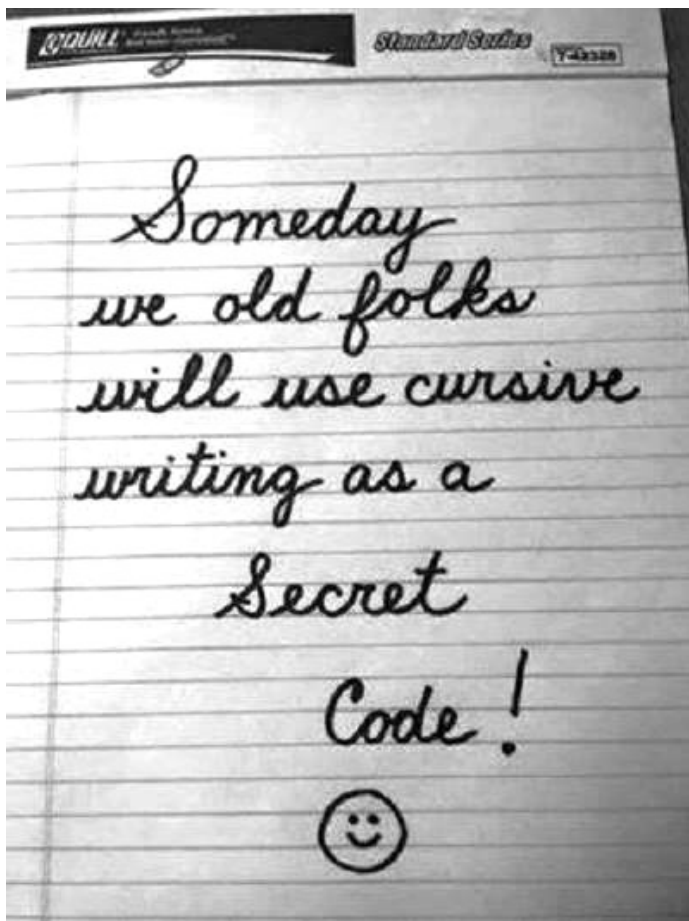 QUILL
Standard Series
7-42328
Someday
we old folks
will use cursive
writing as a
Secret
Code!